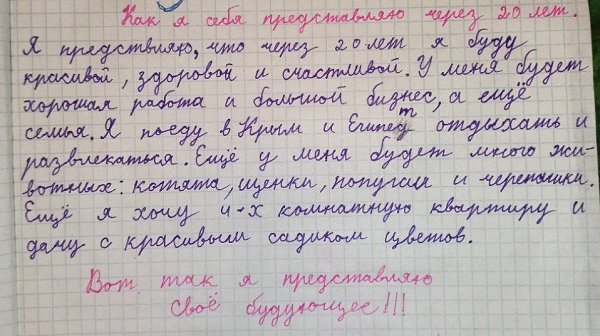 Как я себя представляю через 20 лет.
Я предствляю, что через 20 лет я буду
красивой, здоровой и счастливой. У меня будет
хорошая работа и большой бизнес, а ещё
семья. Я поеду в Крым и Египет отдыхать и
развлекаться. Ещё у меня будет много жи-
вотных: котята, щенки, попугаи и черепашки.
Ещё я хочу 4-х комнатную квартиру и
дачу с красивым садиком цветов.
Вот так я представляю
своё будующее!!!